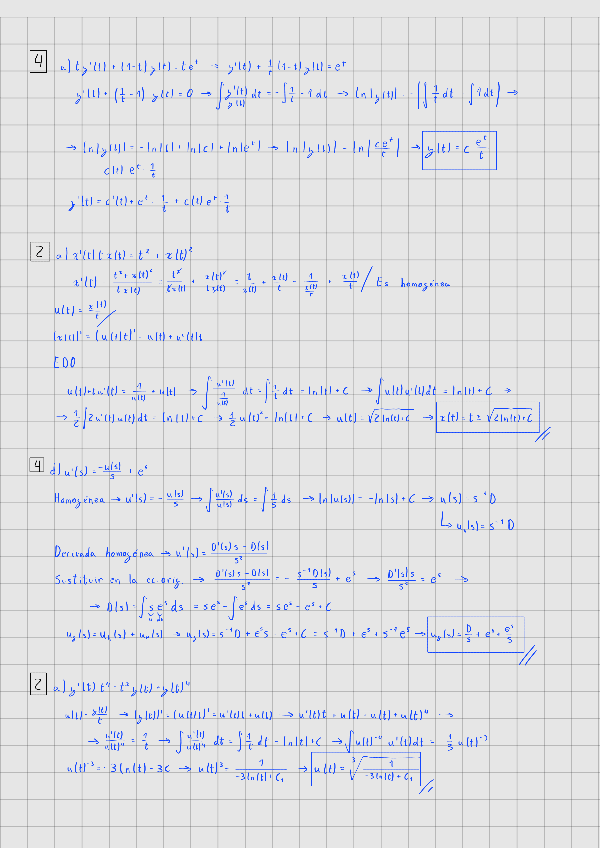 4 a) t y'(t) + (1-t) y(t) = t e^t → y'(t) + 1/t (1-t) y(t) = e^t
y'(t) + (1/t - 1) y(t) = 0 → ∫ y'(t)/y(t) dt = -∫ 1/t - 1 dt → ln|y(t)| = -(∫ 1/t dt ∫ 1 dt) →
→ ln|y(t)| = -ln|t| + ln|c| + ln|e^t| → ln|y(t)| = ln|c e^t/t| → y(t) = c e^t/t
c(t) e^t · 1/t
y'(t) = c'(t) + e^t · 1/t + c(t) e^t · 1/t
2 a) x'(t) t x(t) = t² + x(t)²
x'(t) = t² + x(t)²/t x(t) = t²/t x(t) + x(t)²/t x(t) = t/x(t) + x(t)/t = 1/(x(t)/t) + x(t)/t / Es homogénea
u(t) = x(t)/t
(x(t))' = (u(t)t)' = u(t) + u'(t)t
EDO
u(t) + t u'(t) = 1/u(t) + u(t) → ∫ u'(t)/(1/u(t)) dt = ∫ 1/t dt = ln(t) + C → ∫ u(t) u'(t) dt = ln(t) + C →
→ 1/2 ∫ 2 u'(t) u(t) dt = ln(t) + C → 1/2 u(t)² = ln(t) + C → u(t) = √(2 ln(t) + C) → x(t) = t ± √(2 ln(t) + C)
4 d) u'(s) = -u(s)/s + e^s
Homogénea → u'(s) = -u(s)/s → ∫ u'(s)/u(s) ds = ∫ 1/s ds → ln(u(s)) = -ln(s) + C → u(s) = s⁻¹D
↳ u_h(s) = s⁻¹D
Derivada homogénea → u'(s) = D'(s)s - D(s)/s²
Sustituir en la ec. orig. → D'(s)s - D(s)/s² = - s⁻¹D(s)/s + e^s → D'(s)s/s² = e^s →
→ D(s) = ∫ s e^s ds = s e^s - ∫ e^s ds = s e^s - e^s + C
u dv
u_g(s) = u_h(s) + u_p(s) → u_g(s) = s⁻¹D + e^s s e^s + C = s⁻¹D + e^s + s⁻¹e^s → u_g(s) = D/s + e^s + e^s/s
2 a) y'(t) t⁴ = t³ y(t) + y(t)⁴
u(t) = y(t)/t → (y(t))' = (u(t)t)' = u'(t)t + u(t) → u'(t)t + u(t) = u(t) + u(t)⁴ →
→ u'(t)/u(t)⁴ = 1/t → ∫ u'(t)/u(t)⁴ dt = ∫ 1/t dt = ln|t| + C → ∫ u(t)⁻⁴ u'(t) dt = 1/3 u(t)⁻³
u(t)⁻³ = -3 ln(t) - 3C → u(t)³ = 1/(-3 ln(t) + C₁) → u(t) = ³√(1/(-3 ln(t) + C₁))